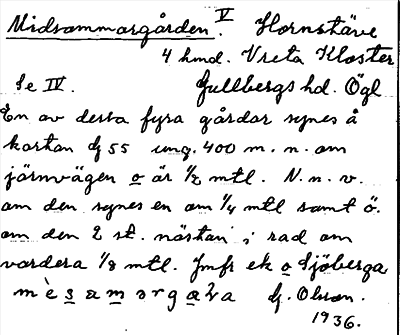 Midsommargården. V Hornstäve
4 hmd. Vreta Kloster
Se IV. Gullbergs hd. Ögl
En av dessa fyra gårdar synes å
kartan bj 55 ung. 400 m. n. om
järnvägen o är 1/2 mtl. N. n. v.
om den synes en om 1/4 mtl samt ö.
om den 2 st. nästan i rad om
vardera 1/8 mtl. Jmfr ek o Sjöberga
mèsamərga
G. Olson.
1936.